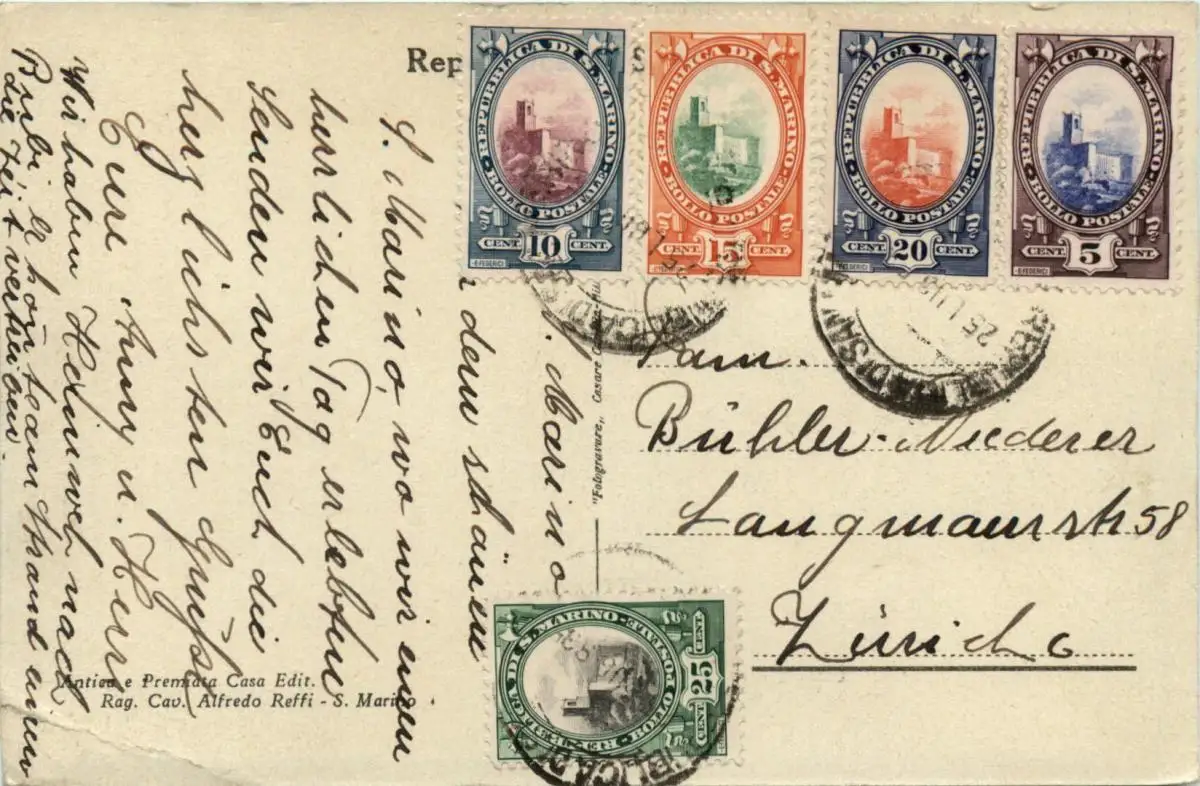 Rep
REPUBBLICA DI S. MARINO
BOLLO POSTALE
CENT. 10 CENT.
E. FEDERICI
REPUBBLICA DI S. MARINO
BOLLO POSTALE
CENT. 15 CENT.
REPUBBLICA DI S. MARINO
BOLLO POSTALE
CENT. 20 CENT.
E. FEDERICI
REPUBBLICA DI S. MARINO
BOLLO POSTALE
CENT. 5 CENT.
E. FEDERICI
. Marino
dem schönen
S. Marino, wo wir einen
herrlichen Tag erlebten
Senden wir Euch die
herzlichsten Grüsse
Eure Anny u. Herr
Wir haben Heimweh nach
er Strand
die Zeit vertrieben.
"Fotogravure„ Cesare C
Fam.
Bühler-Niederer
Langmaurstr 58
Zürich 6
REPUBBLICA DI S. MARINO
BOLLO POSTALE
CENT. 25 CENT.
25 LUG
Antica e Premiata Casa Edit.
Rag. Cav. Alfredo Reffi - S. Marino